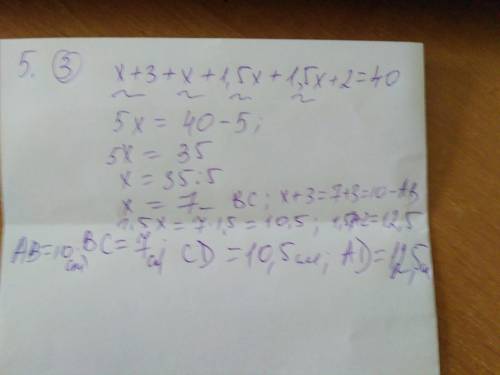 5. 3 x+3+x+1,5x+1,5x+2=40
5x = 40-5;
5x = 35
x = 35:5
x = 7 - BC; x+3=7+3=10-AB
1,5x = 7·1,5 = 10,5; 1,5x+2=12,5
AB=10 см; BC=7 см; CD=10,5 см; AD=12,5 см